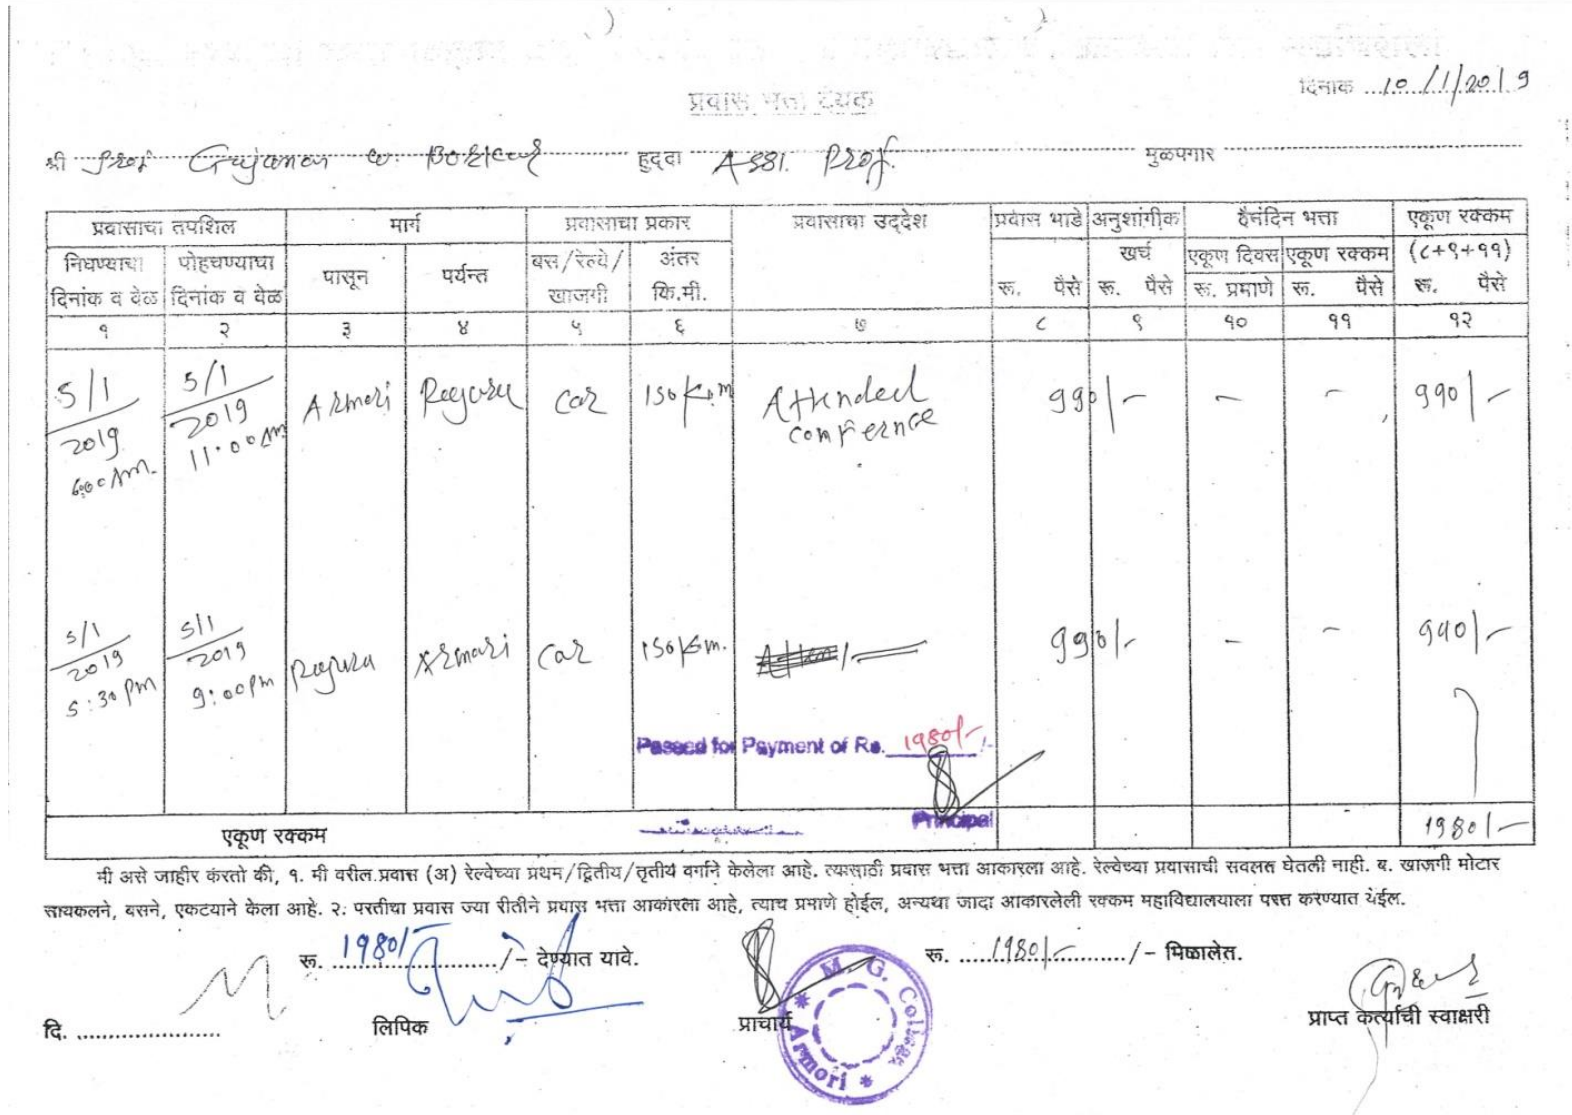 दिनांक ... 10/1/2019
प्रवास भत्ता देयक
श्री Prof हुद्दा Assi. Prof. मुळपगार
प्रवासाचा तपशिल मार्ग प्रवासाचा प्रकार प्रवासाचा उद्देश प्रवास भाडे अनुशांगीक खर्च दैनंदिन भत्ता एकूण रक्कम
निघण्याचा दिनांक व वेळ पोहचण्याचा दिनांक व वेळ पासून पर्यन्त बस/रेल्वे/खाजगी अंतर कि.मी. रू. पैसे रू. पैसे एकूण दिवस रू. प्रमाणे एकूण रक्कम रू. पैसे (८+९+११) रू. पैसे
१ २ ३ ४ ५ ६ ७ ८ ९ १० ११ १२
5/1/2019 6:00 AM. 5/1/2019 11:00 AM. Armori car 150 K.m Attended confernce 990/- - - 990/-
5/1/2019 5:30 PM 5/1/2019 9:00 PM Armori car 150 Km. 990/- - - 990/-
Passed for Payment of Rs. 1980/- /-
Principal
एकूण रक्कम 1980/-
मी असे जाहीर करतो की, १. मी वरील प्रवास (अ) रेल्वेच्या प्रथम/द्वितीय/तृतीय वर्गाने केलेला आहे. त्यासाठी प्रवास भत्ता आकारला आहे. रेल्वेच्या प्रवासाची सवलत घेतली नाही. ब. खाजगी मोटार
सायकलने, बसने, एकटयाने केला आहे. २. परतीचा प्रवास ज्या रीतीने प्रवास भत्ता आकारला आहे, त्याच प्रमाणे होईल, अन्यथा जादा आकारलेली रक्कम महाविद्यालयाला परत करण्यात येईल.
रू. 1980/- /- देण्यात यावे. रू. 1980/- /- मिळालेत.
दि. लिपिक प्राचार्य प्राप्त कर्त्याची स्वाक्षरी
M. G. College Armori